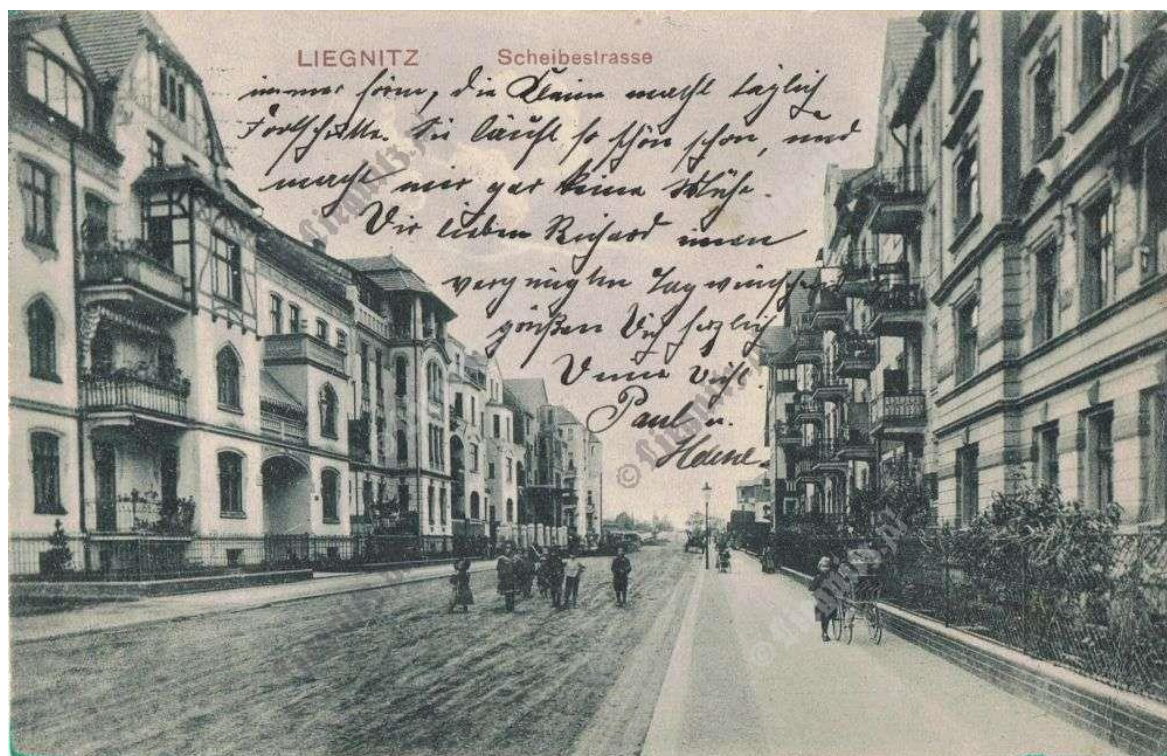 LIEGNITZ Scheibestrasse
immer hörn, die Kleine macht täglich
Fortschritte. Sie läuft so schön schon, und
macht mir gar keine Mühe.
Dir lieben Richard einen
vergnügten Tag wünschen
grüßen Dich herzlich
Deine
Paul u.
© liegnitz.pl